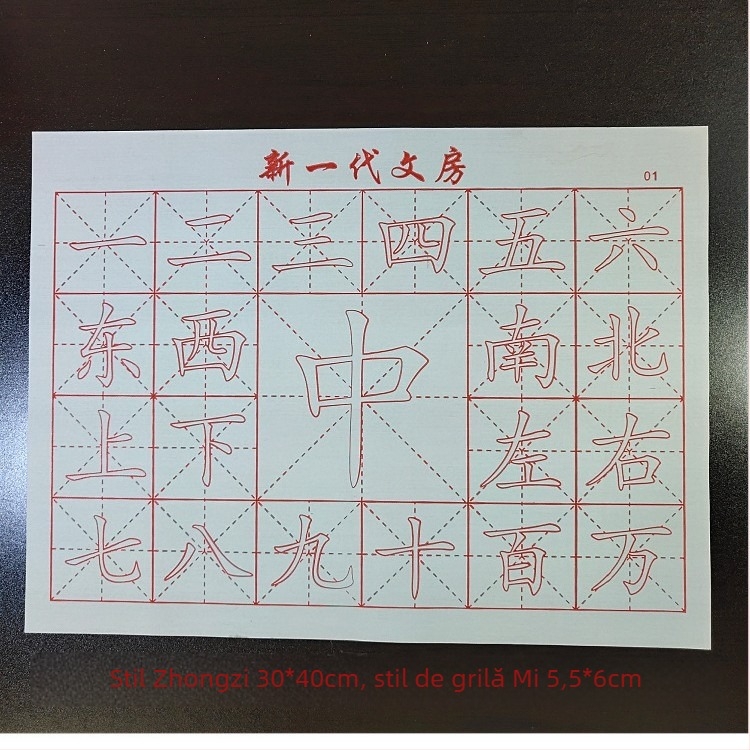 新一代文房
01
一 二 三 四 五 六
东 西 中 南 北
上 下 左 右
七 八 九 十 百 万
Stil Zhongzi 30*40cm, stil de grilă Mi 5,5*6cm